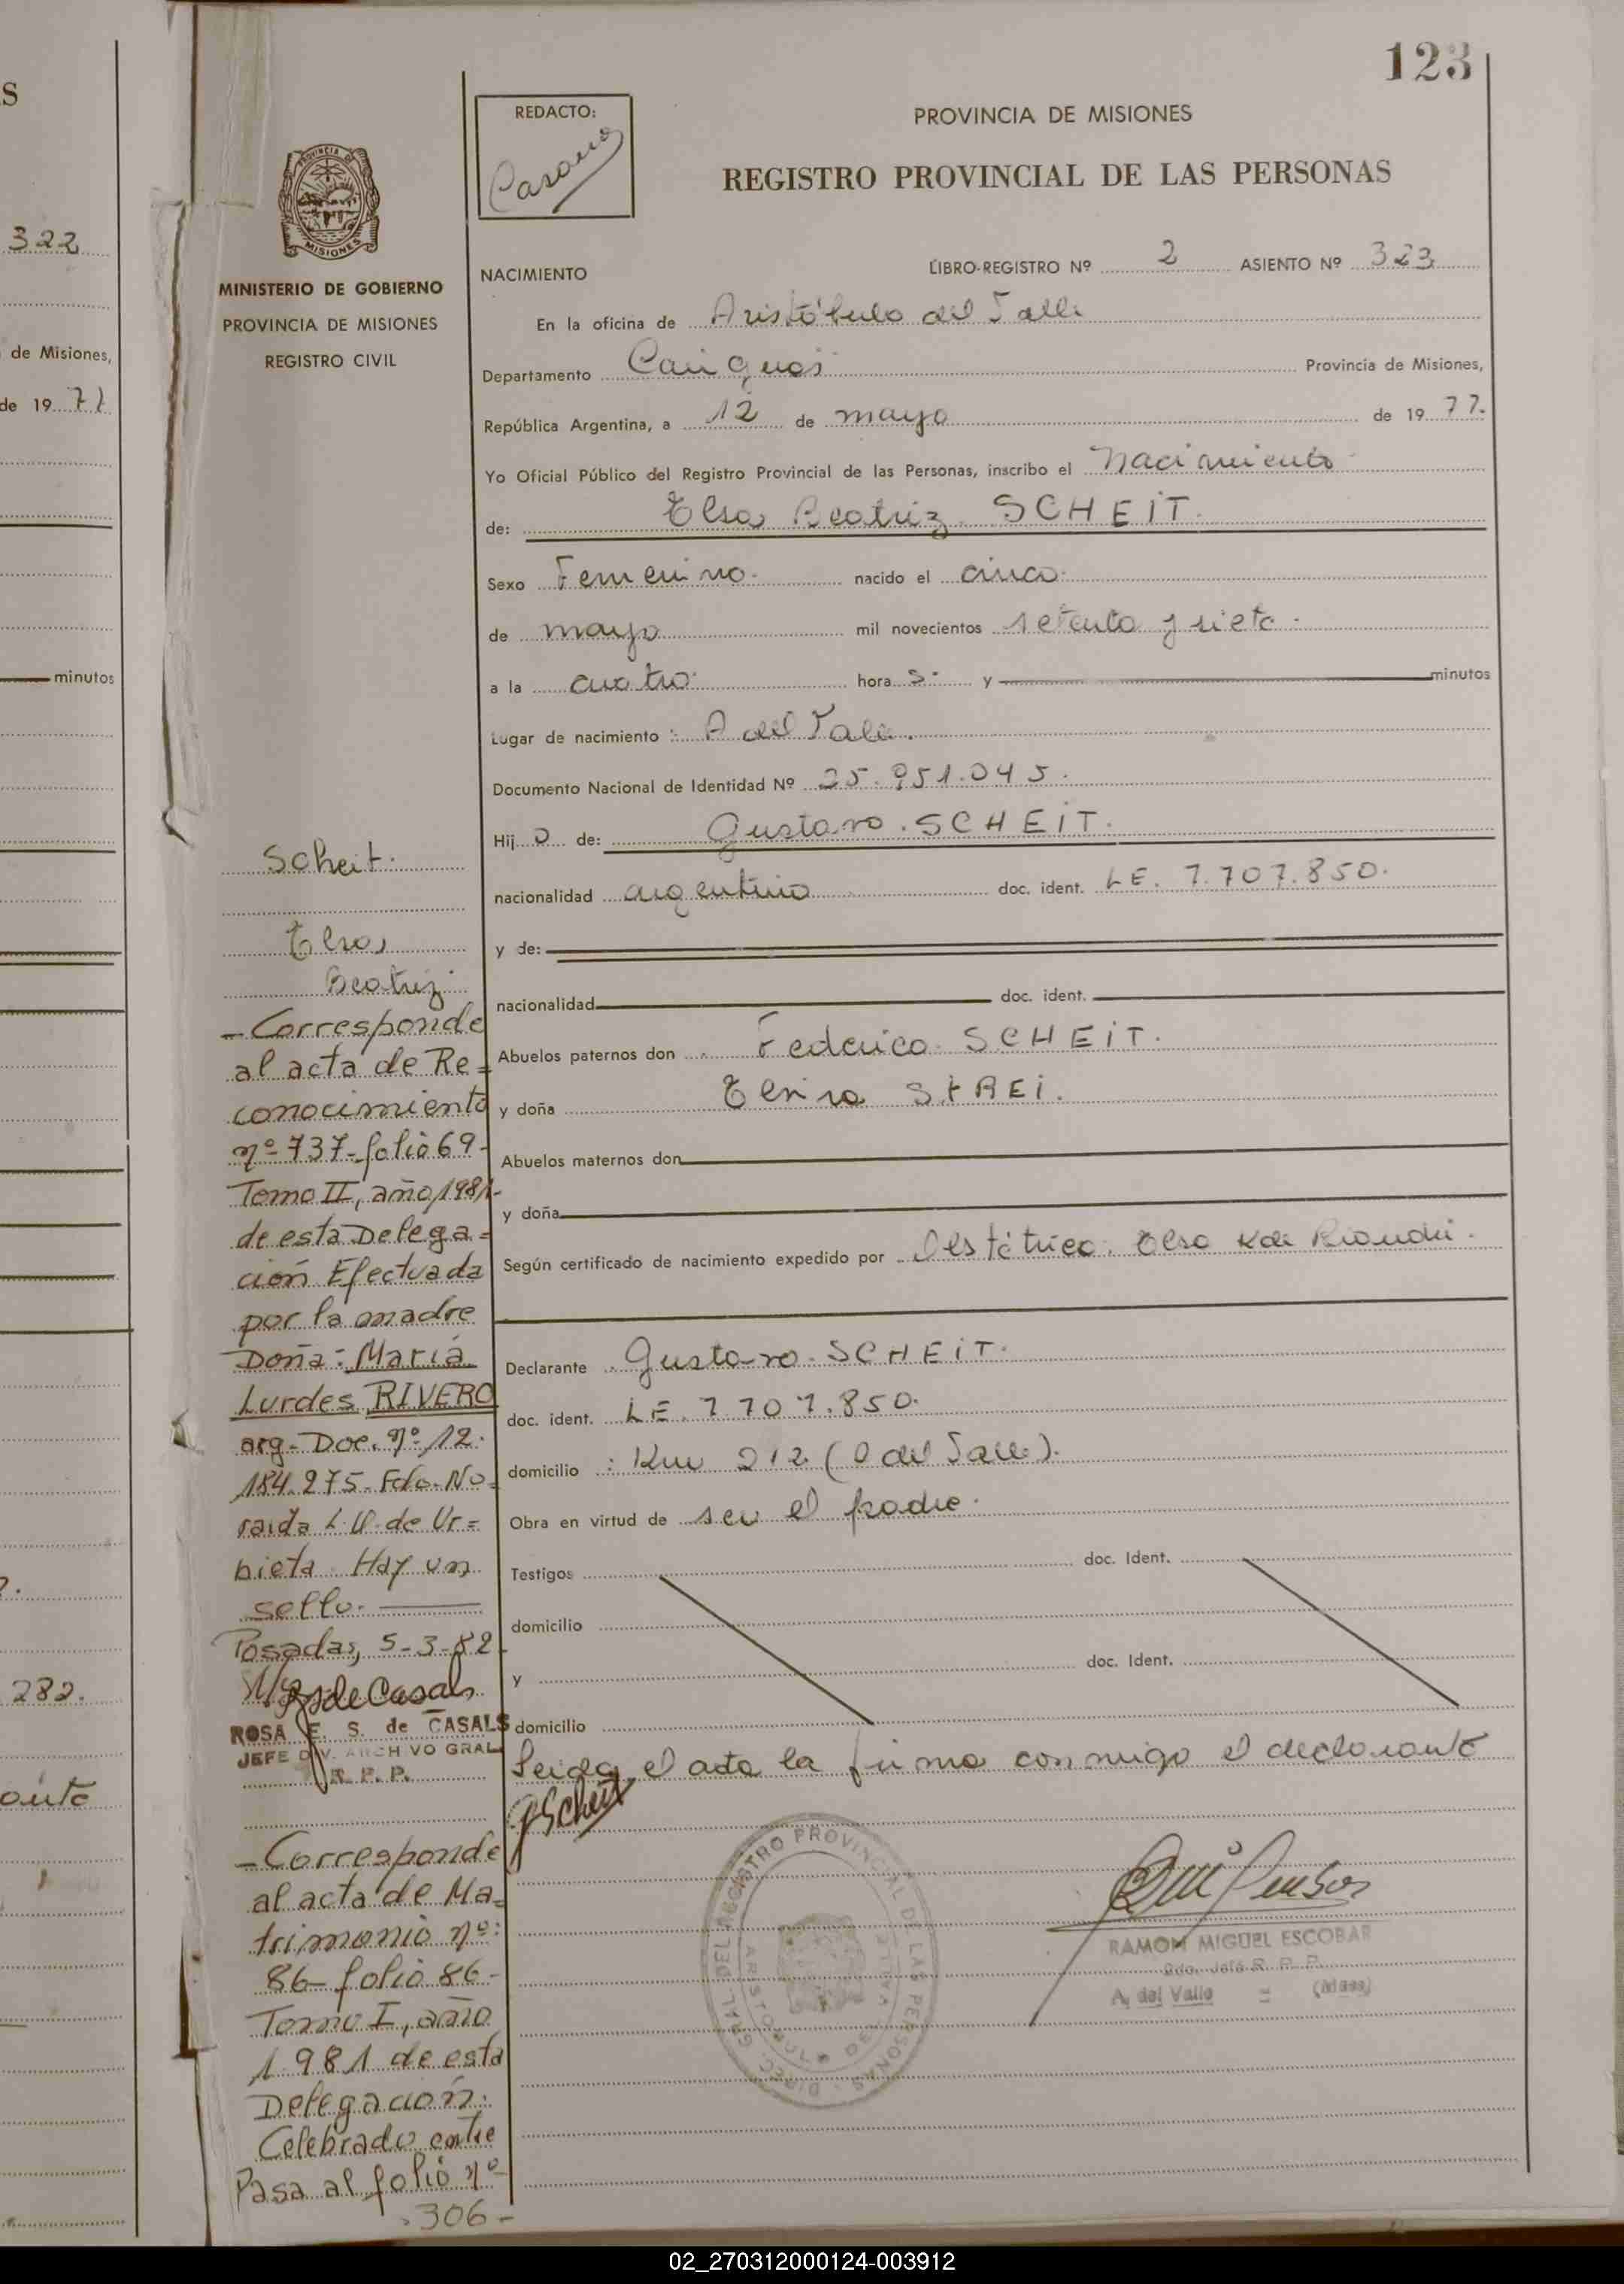 123
S
322
de Misiones,
de 19 77
minutos
282.
onte
REDACTO:
PROVINCIA DE MISIONES
REGISTRO PROVINCIAL DE LAS PERSONAS
PROVINCIA DE
MISIONES
MINISTERIO DE GOBIERNO
PROVINCIA DE MISIONES
REGISTRO CIVIL
NACIMIENTO
LIBRO-REGISTRO Nº 2 ASIENTO Nº 323
En la oficina de Aristóbulo del Valle
Departamento Cainguás Provincia de Misiones,
República Argentina, a 12 de mayo de 19 77.
Yo Oficial Público del Registro Provincial de las Personas, inscribo el Nacimiento
de: Elsa Beatriz SCHEIT.
Sexo Femenino. nacido el cinco.
de mayo mil novecientos setenta y siete.
a la cuatro hora s. y minutos
Lugar de nacimiento : A del Valle.
Documento Nacional de Identidad Nº 25.951.045.
Hij o de: Gustavo. SCHEIT.
nacionalidad argentino doc. ident. LE. 7.707.850.
y de:
nacionalidad doc. ident.
Abuelos paternos don Federico. SCHEIT.
y doña StREi.
Abuelos maternos don
y doña
Según certificado de nacimiento expedido por Obstétrica. Elsa K de
Declarante Gustavo. SCHEIT.
doc. ident. LE. 7 707.850.
domicilio : Km 212 (A del Valle).
Obra en virtud de ser el padre.
Testigos doc. Ident.
domicilio
y doc. Ident.
domicilio
Leida el acta la firma conmigo el declarante
GScheit
DIREC. GRAL. DEL REGISTRO PROVINCIAL DE LAS PERSONAS
RAMON MIGUEL ESCOBAR
Gdo. Jefe R. P. P.
A. del Valle = (Mnes)
Scheit.
Elsa
Beatriz
- Corresponde
al acta de Re=
conocimiento
nº 737- folio 69-
Tomo II, año 1981-
de esta Delega=
ción Efectuada
por la madre
Doña: María
Lurdes RIVERO
arg- Doc. nº 12.
184.275. Fdo. No=
raida L.U. de Ur=
bieta. Hay un
sello.
Posadas, 5-3-82
ROSA E. S. de CASALS
JEFE DIV. ARCHIVO GRAL
R. P. P.
- Corresponde
al acta de Ma=
trimonio nº:
86- folio 86-
Tomo I, año
1981 de esta
Delegación.
Celebrado entre
Pasa al folio nº
306-
02_270312000124-003912